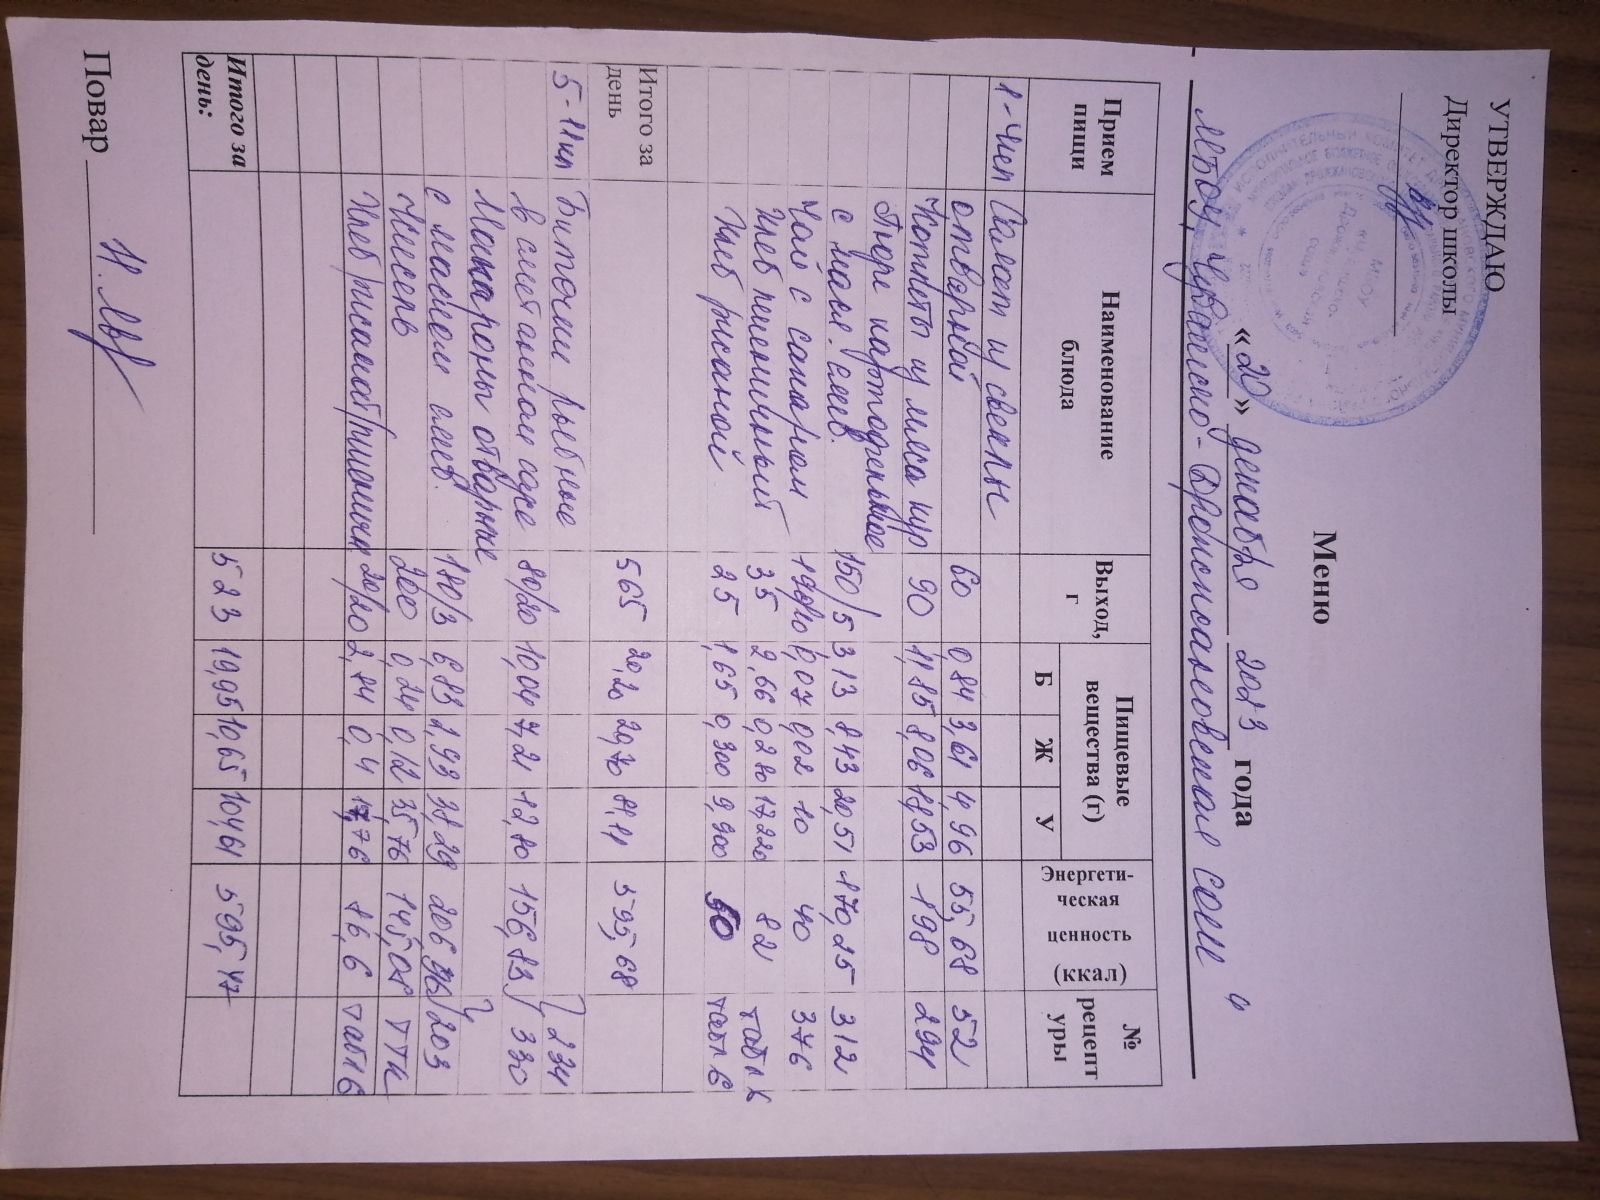 УТВЕРЖДАЮ
Директор школы
Меню
«20» декабря 2023 года
Прием пищи | Наименование блюда | Выход, г | Пищевые вещества (г) | Энергети-ческая ценность (ккал) | № рецепт уры
Б | Ж | У
1-4кл | Салат из свеклы
отварной | 60 | 0,84 | 3,61 | 4,96 | 55,68 | 52
Котлеты из мяса кур | 90 | 11,85 | 8,06 | 18,53 | 198 | 294
Пюре картофельное
с масл. слив. | 150/5 | 3,13 | 8,43 | 20,51 | 170,25 | 312
Чай с сахаром | 0,07 | 0,02 | 10 | 40 | 376
Хлеб пшеничный | 35 | 2,66 | 0,280 | 17,220 | 82
Хлеб ржаной | 25 | 1,65 | 0,300 | 9,900 | 50
Итого за день | 565 | 20,20 | 20,70 | 81,11 | 595,68
5-11кл | Биточки рыбные | 234
в сметанном соусе | 80/20 | 10,04 | 7,21 | 12,80 | 156,83 | 330
Макароны отварные
с маслом слив. | 180/3 | 6,83 | 2,93 | 38,29 | 206 | 203
Кисель | 200 | 0,24 | 0,12 | 35,76 | 145,08 | ТТК
Хлеб ржаной/пшеничн | 20/20 | 2,84 | 0,4 | 17,76 | 86,6
Итого за день: | 523 | 19,95 | 10,65 | 104,61 | 595,47
Повар